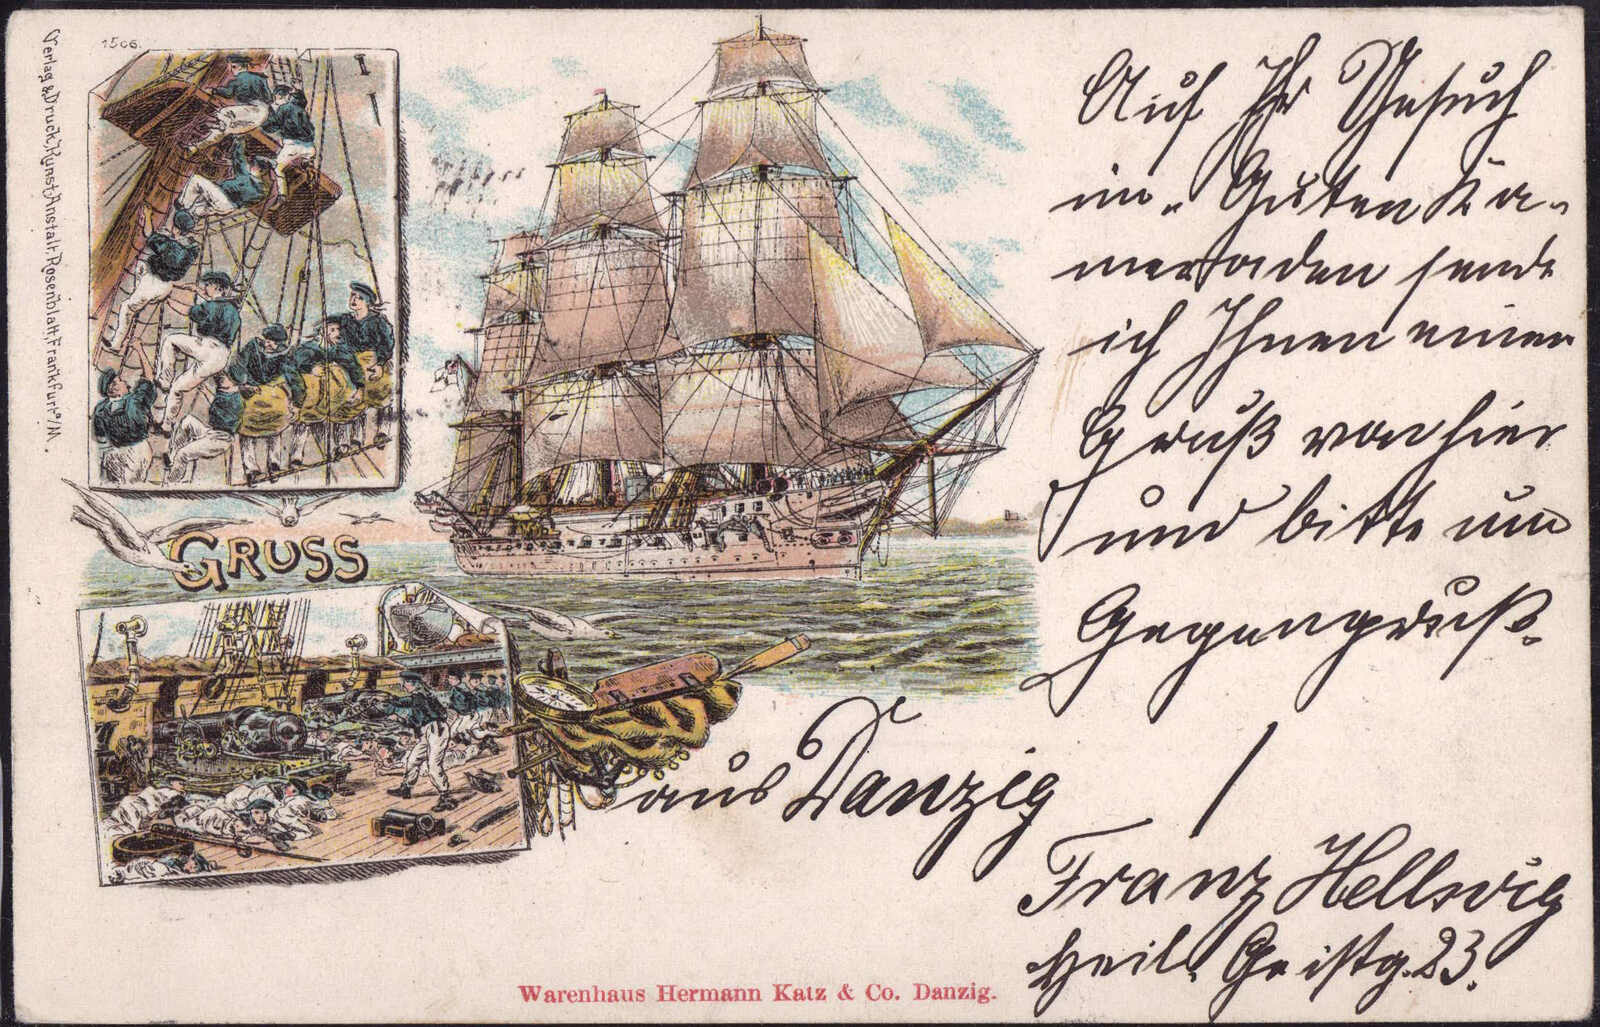 1506.
Verlag & Druck, Kunst-Anstalt, Rosenblatt, Frankfurt a/M.
GRUSS
Auf Ihr Gesuch
im „Guten Ka-
meraden sende
ich Ihnen einen
Gruß von hier
und bitte um
Gegengruß.
aus Danzig
Franz Hellwig
Heil. Geistg. 23.
Warenhaus Hermann Katz & Co. Danzig.